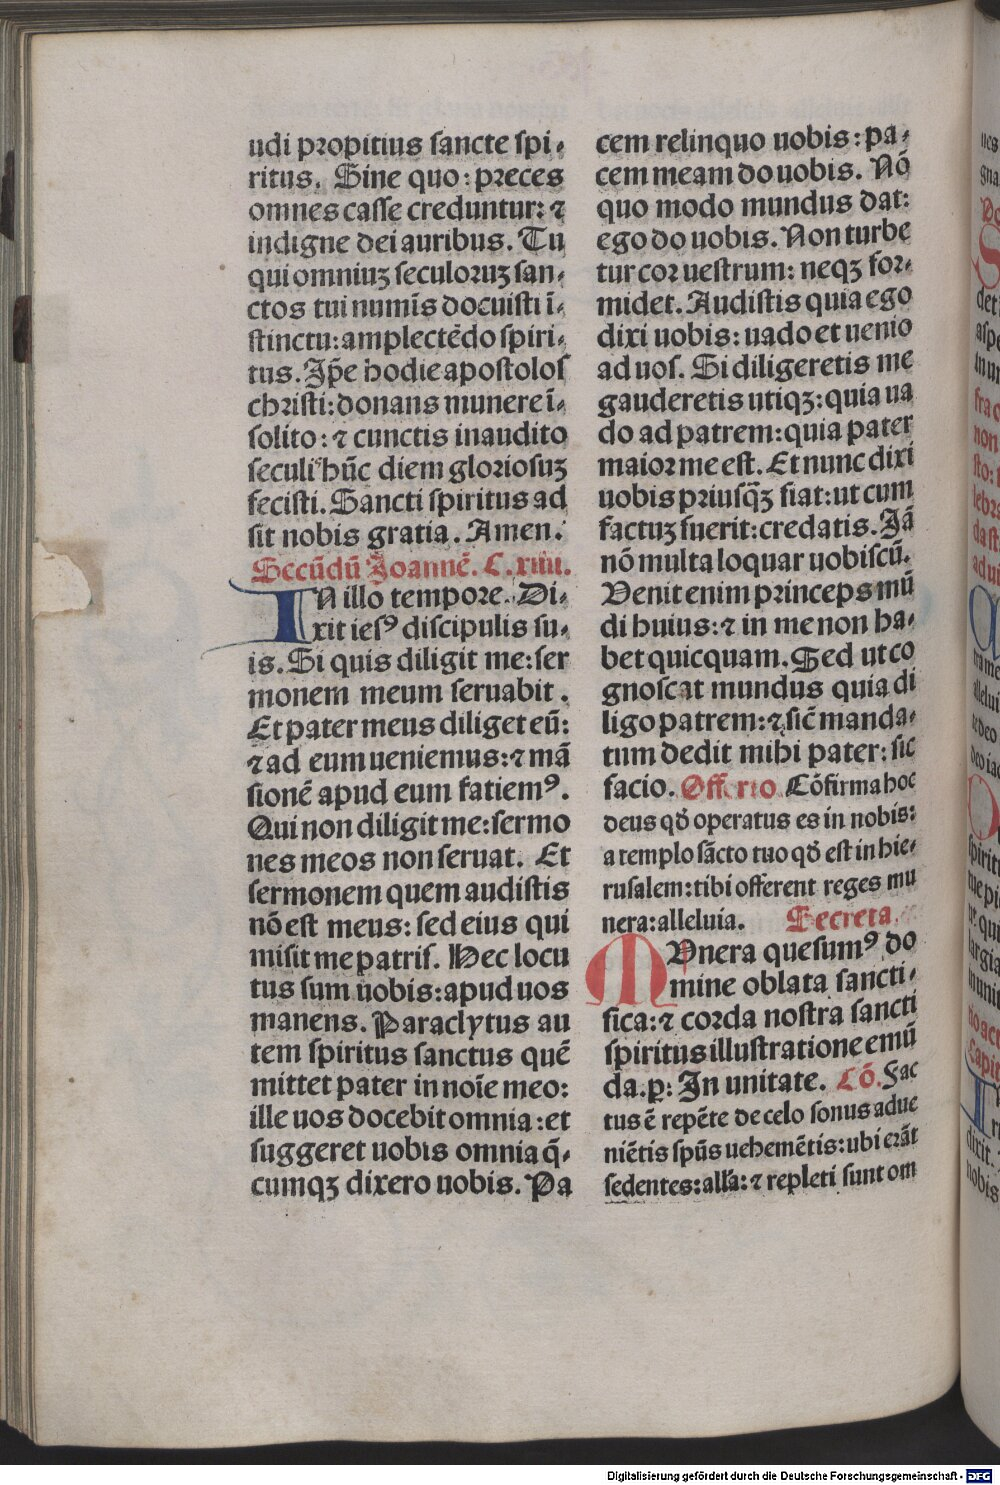 udi propitius sancte spi⸗
ritus. Sine quo: preces
omnes casse creduntur: ⁊
indigne dei auribus. Tu
qui omniuꝫ seculoruꝫ san⸗
ctos tui numīs docuisti ī⸗
stinctu: amplectēdo spiri⸗
tus. Ip̄e hodie apostolos
christi: donans munere ī⸗
solito: ⁊ cunctis inaudito
seculiˢ hūc diem gloriosuꝫ
fecisti. Sancti spiritus ad
sit nobis gratia. Amen.
Secūdū Joannē. C. xiiii.
IN illo tempore. Di⸗
xit iesꝰ discipulis su⸗
is. Si quis diligit me: ser
monem meum seruabit.
Et pater meus diliget eū:
⁊ ad eum ueniemus: ⁊ mā
sionē apud eum fatiemꝰ.
Qui non diligit me: sermo
nes meos non seruat. Et
sermonem quem audistis
nō est meus: sed eius qui
misit me patris. Hec locu
tus sum uobis: apud uos
manens. Paraclytus au
tem spiritus sanctus quē
mittet pater in noīe meo:
ille uos docebit omnia: et
suggeret uobis omnia q̄⸗
cumqꝫ dixero uobis. Pa
cem relinquo uobis: pa⸗
cem meam do uobis. Nō
quo modo mundus dat:
ego do uobis. Non turbe
tur cor uestrum: neqꝫ for⸗
midet. Audistis quia ego
dixi uobis: uado et uenio
ad uos. Si diligeretis me
gauderetis utiqꝫ: quia ua
do ad patrem: quia pater
maior me est. Et nunc dixi
uobis priusq̄ꝫ fiat: ut cum
factuꝫ fuerit: credatis. Iā
nō multa loquar uobiscū.
Venit enim princeps mū
di huius: ⁊ in me non ha⸗
bet quicquam. Sed ut co
gnoscat mundus quia di
ligo patrem: ⁊ sic̄ manda⸗
tum dedit mihi pater: sic
facio. Offerto Cōfirma hoc
deus qđ operatus es in nobis:
a templo sācto tuo qđ est in hie⸗
rusalem: tibi offerent reges mu
nera: alleluia. Secreta.
MVnera quesumꝰ do
mine oblata sancti⸗
fica: ⁊ corda nostra sancti
spiritus illustratione emū
da. ꝑ: In unitate. Cō. Fac
tus ē repēte de celo sonus adue
niētis spūs uehemētis: ubi erāt
sedentes: all'a: ⁊ repleti sunt om
Digitalisierung gefördert durch die Deutsche Forschungsgemeinschaft - DFG